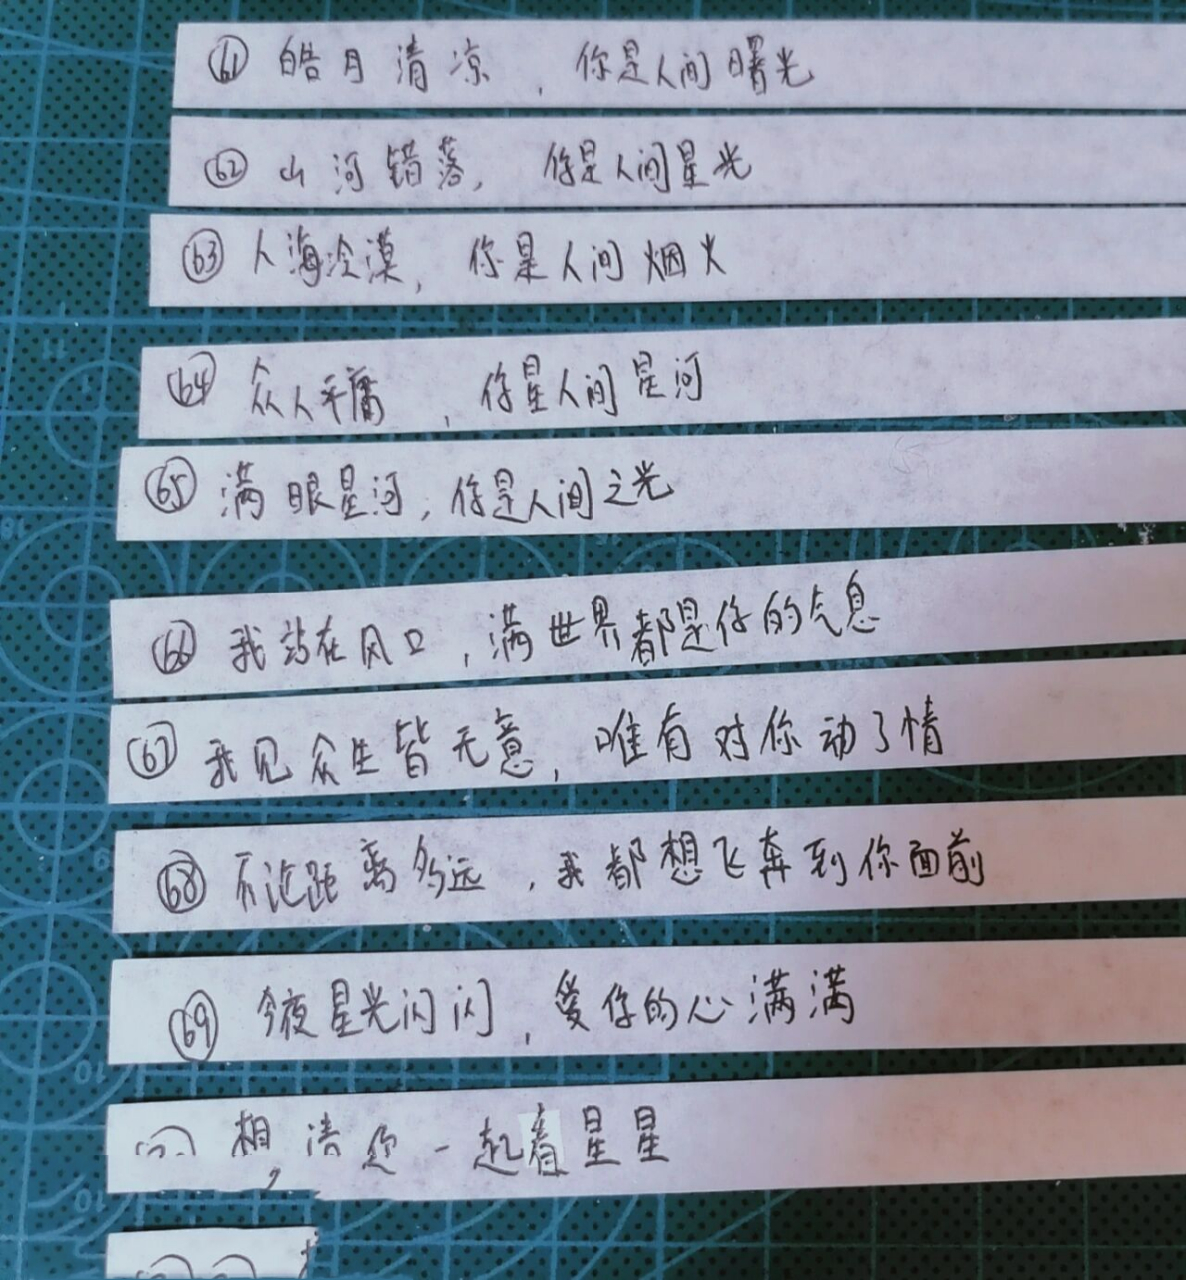 61 皓月清凉，你是人间曙光
62 山河错落，你是人间星光
63 人海冷漠，你是人间烟火
64 众人平庸，你星人间星河
65 满眼星河，你是人间之光
66 我站在风口，满世界都是你的气息
67 我见众生皆无意，唯有对你动了情
68 不论距离多远，我都想飞奔到你面前
69 今夜星光闪闪，爱你的心满满
相，请您一起着星星